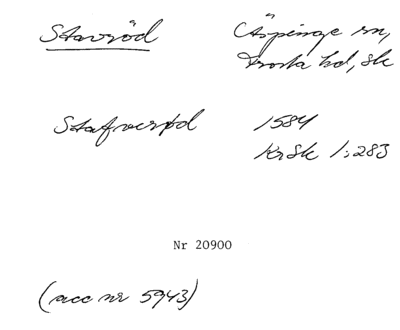 Stavröd Äspinge sn,
Frosta hd, Sk
Stafverød 1584
KrSk 1:283
Nr 20900
(acc nr 5943)